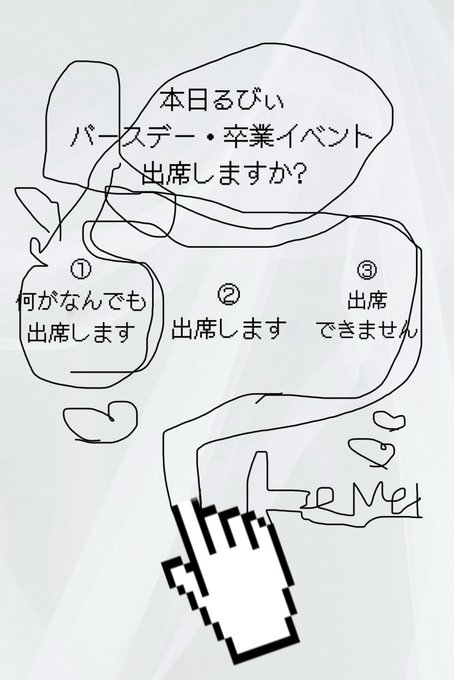 本日るびぃ
バースデー・卒業イベント
出席しますか?
①
何がなんでも
出席します
②
出席します
③
出席
できません